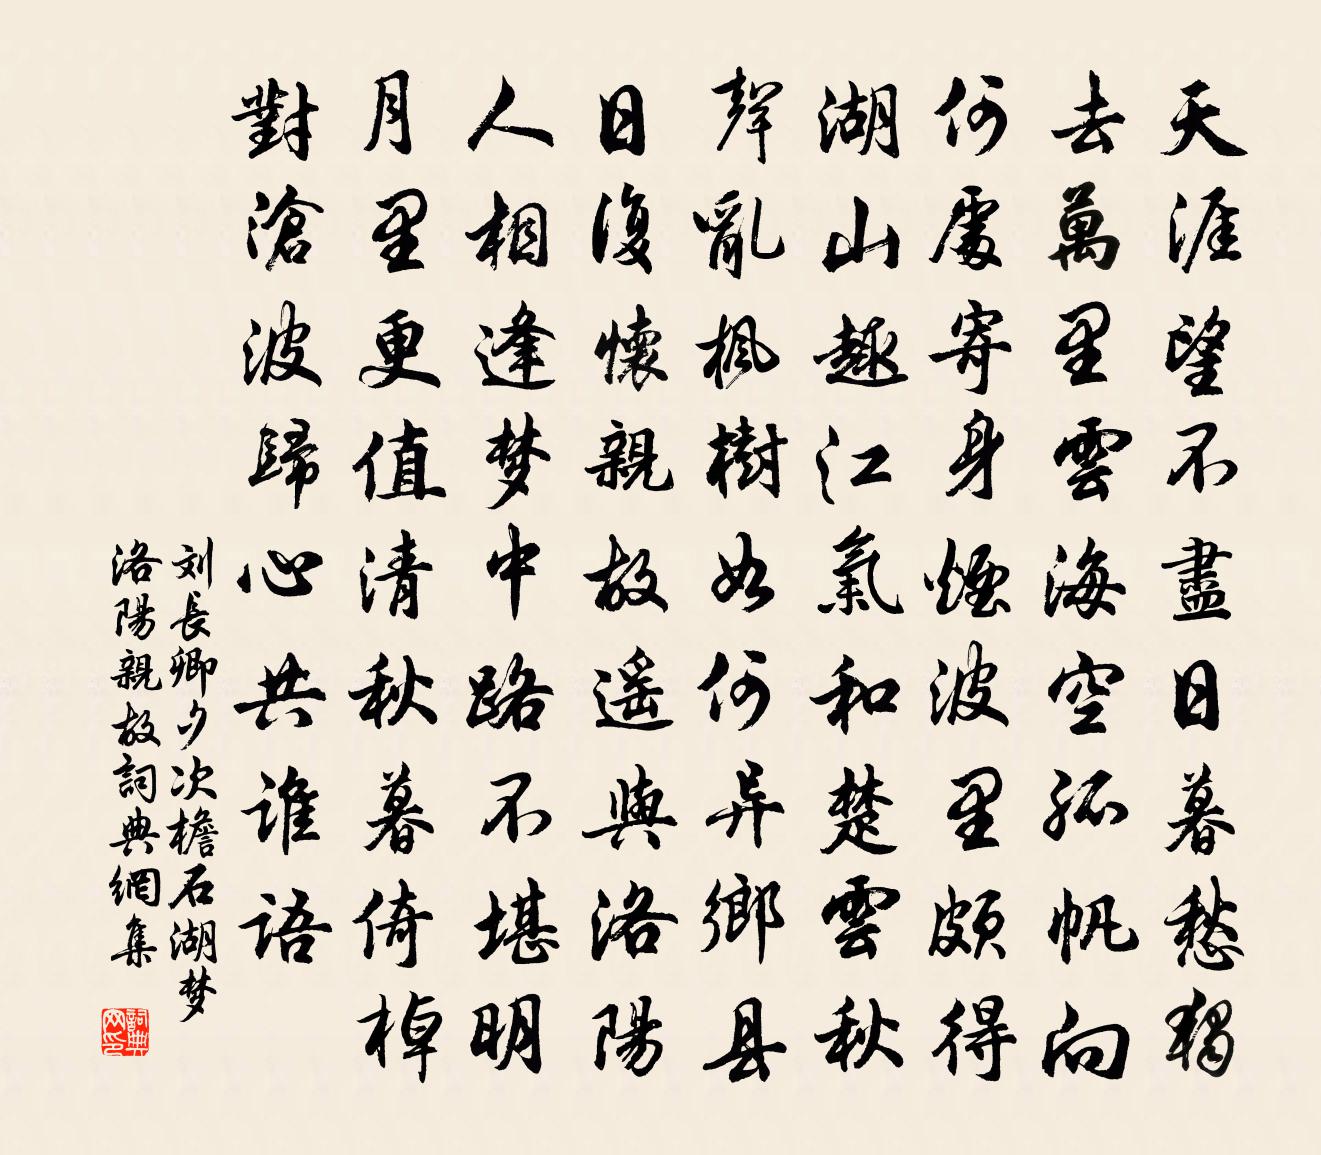 天涯望不盡日暮愁獨
去萬里雲海空孤帆向
何處寄身煙波里頗得
湖山趣江氣和楚雲秋
聲亂楓樹如何异鄉县
日復懷親故遥與洛陽
人相逢梦中路不堪明
月里更值清秋暮倚棹
對滄波歸心共谁語
刘長卿夕次檐石湖梦
洛陽親故詞典網集
詞典
网印